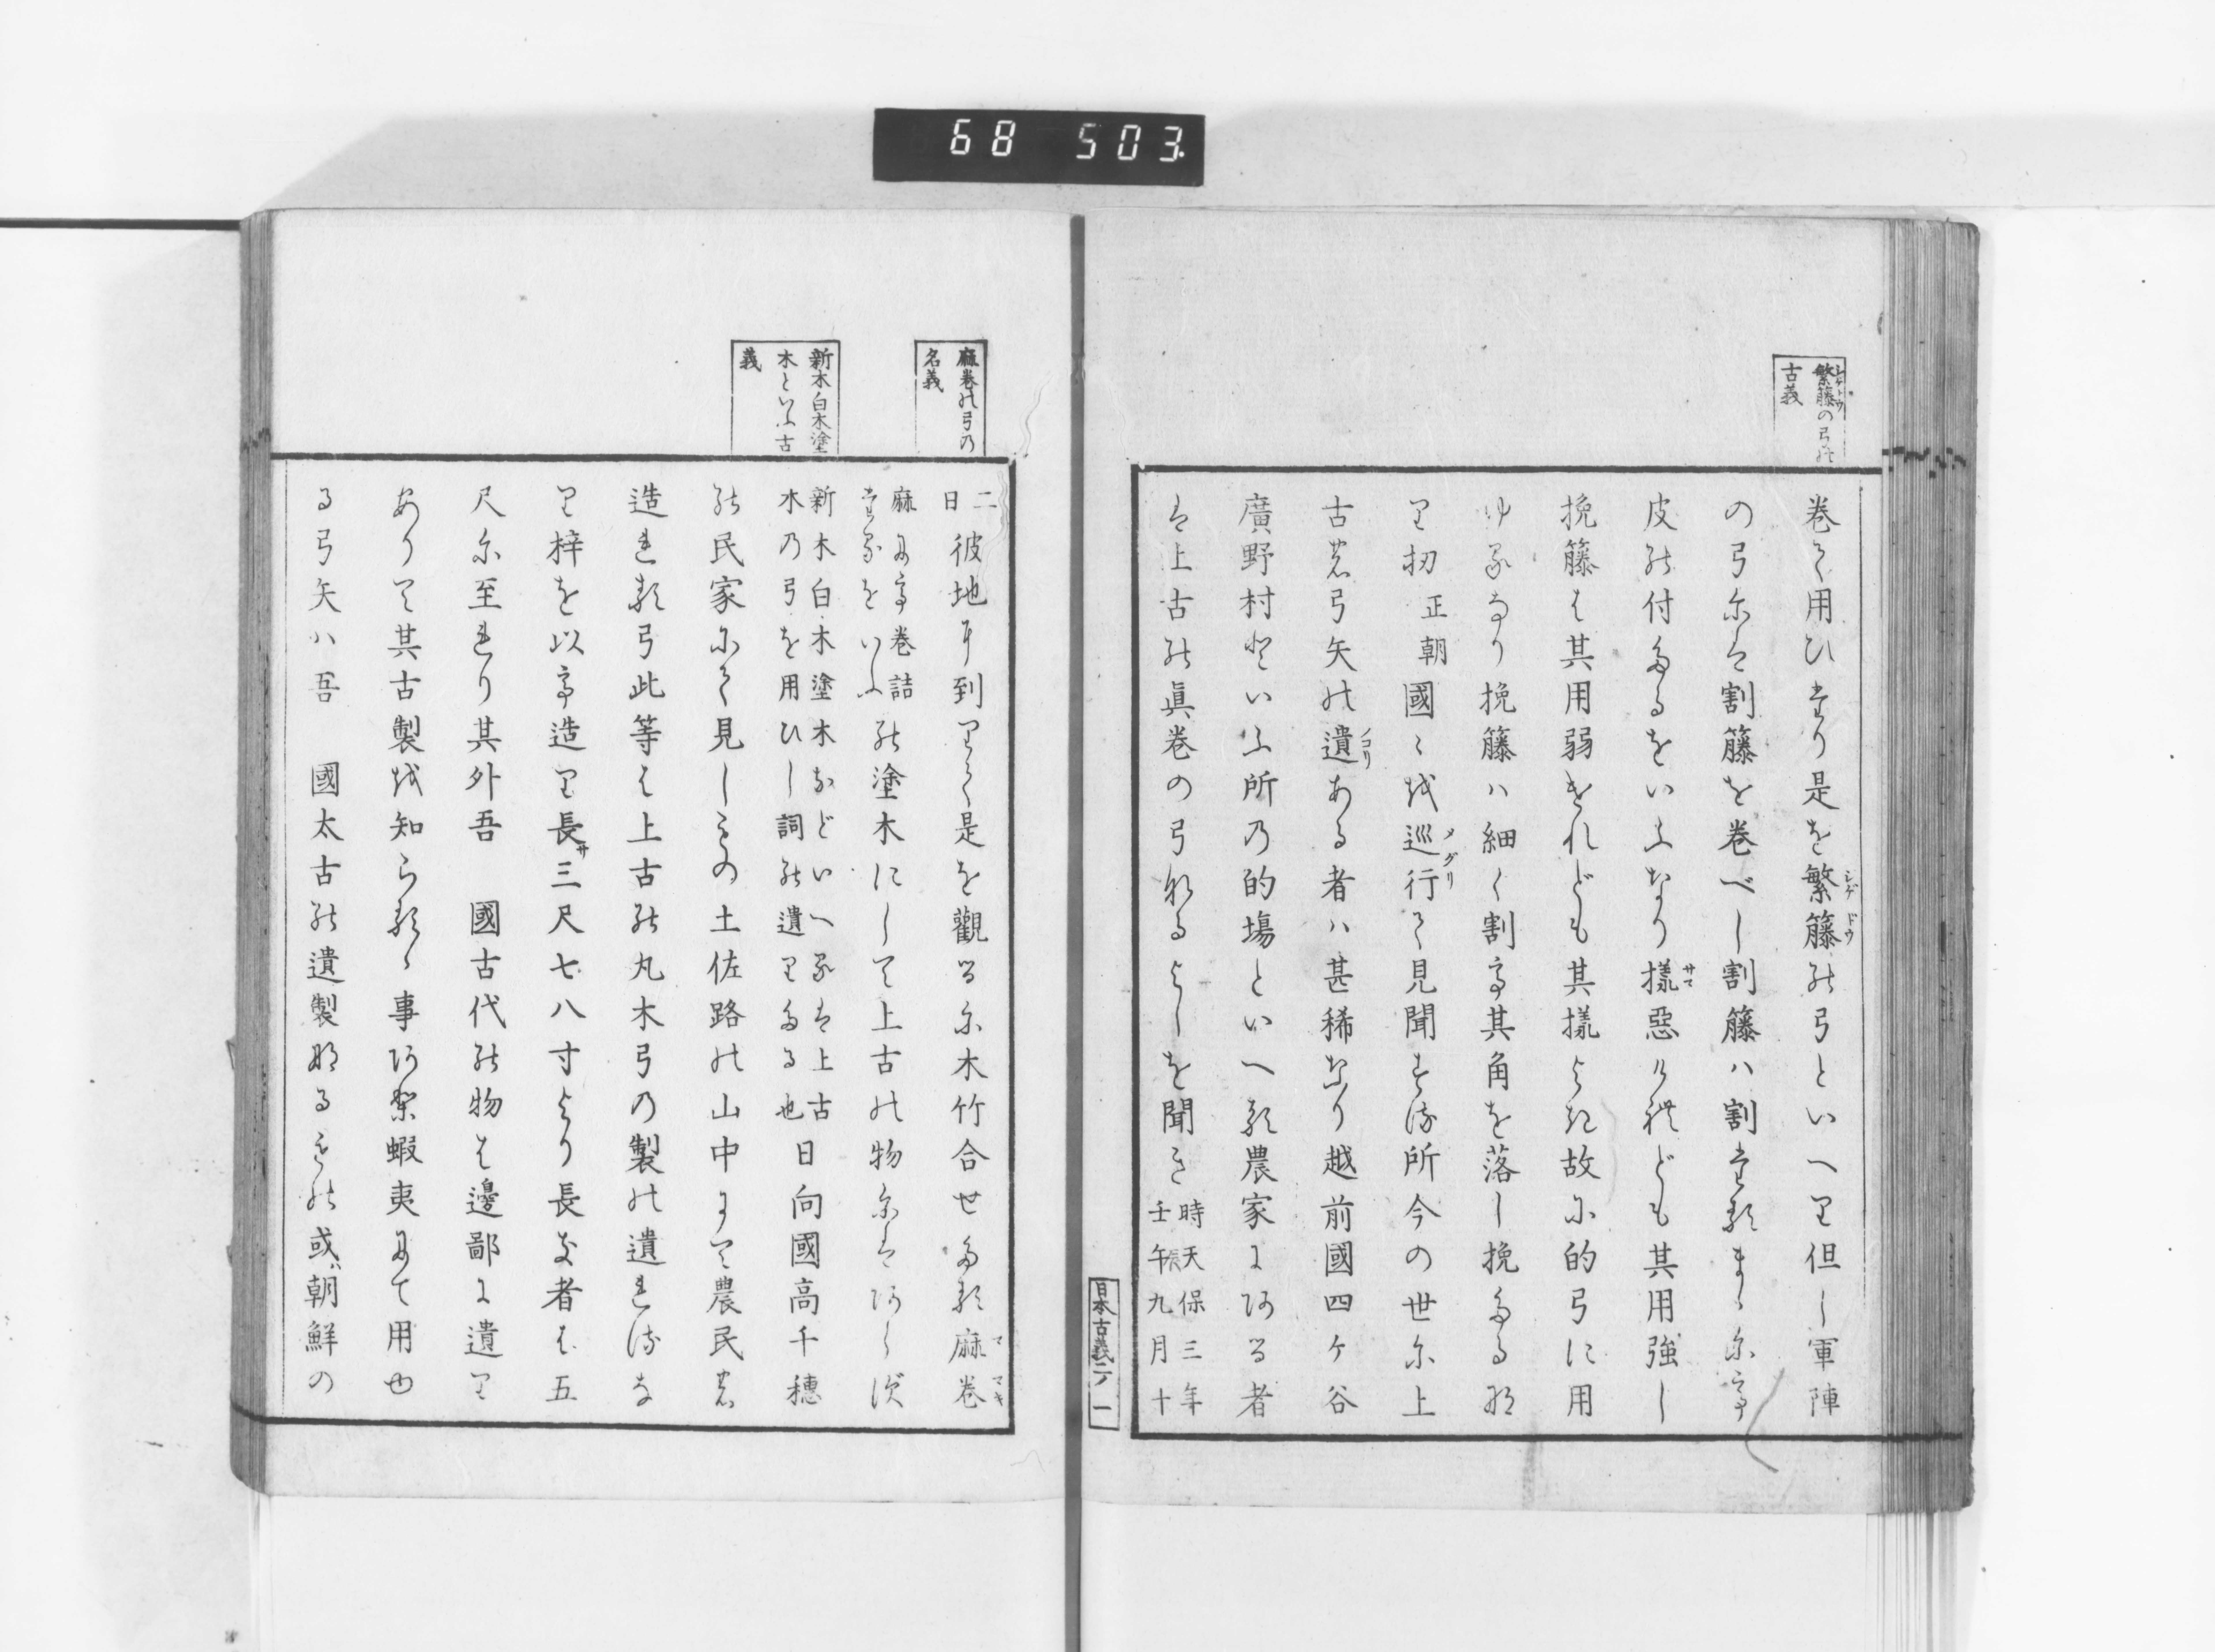 68 503
繁籐の弓能
古義
巻て用ひたり是を繁籐能弓といへり但し軍陣
の弓尓ハ割籐を巻べし割籐ハ割たるまゝ尓て
皮能付たるをいふなり様惡けれども其用強し
挽籐は其用弱けれども其様よき故に的弓に用
ゆるなり挽籐ハ細く割て其角を落し挽たる也
り扨正朝國々を巡行て見聞する所今の世尓上
古の弓矢の遺ある者ハ甚稀なり越前國四ケ谷
廣野村といふ所乃的塲といへる農家にある者
ハ上古能眞巻の弓なるよしを聞き時天保三年
壬午九月十
日本古義二ノ一
麻巻能弓乃
名義
新木白木塗
木といふ古
義
二
日彼地に到りて是を觀る尓木竹合せたる麻巻
麻にて巻詰
たるをいふ能塗木にして上古の物尓はあらす
新木白木塗木などいへるは上古
木乃弓を用ひし詞能遺りたる也日向國高千穗
能民家にて見しもの土佐路の山中にて農民の
造れる弓此等は上古能丸木弓の製の遺れるな
り梓を以て造り長サ三尺七八寸より長き者は五
尺尓至れり其外吾 國古代能物は邊鄙に遺り
ありて其古製を知らるゝ事あり蝦夷にて用也
る弓矢ハ吾 國太古能遺製なるもの或ハ朝鮮の